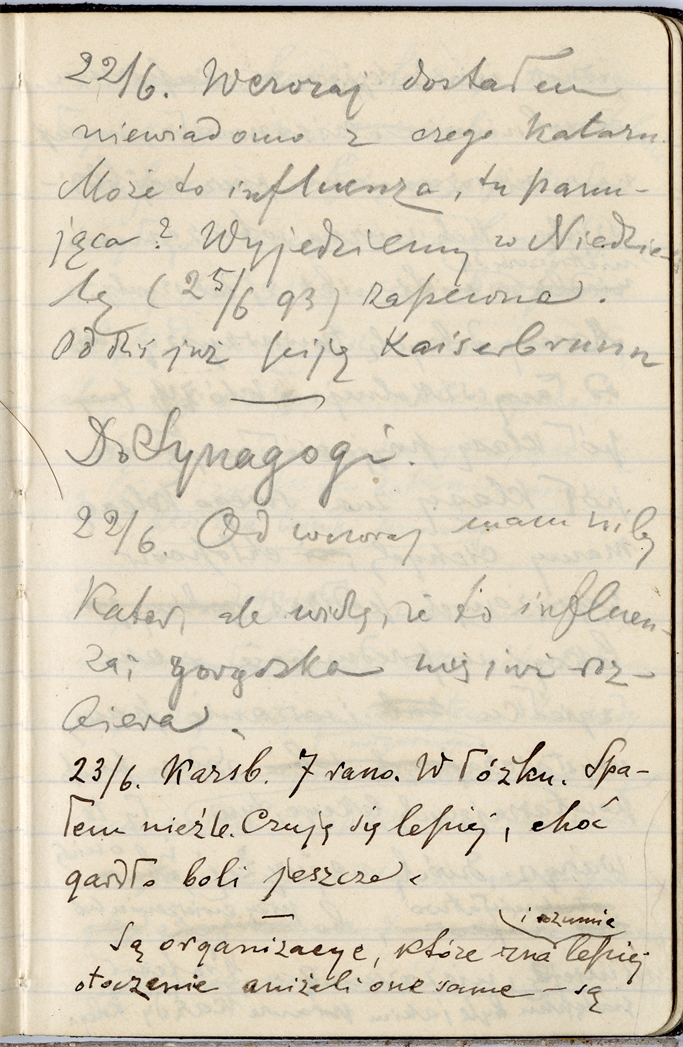 22/6. Wczoraj dostałem
niewiadomo z czego Kataru.
Może to influenza, tu panu-
jąca? Wyjedziemy w Niedzie-
lę (25/6 93) zapewne.
Od dziś już piję Kaiserbrunn
Do Synagogi.
22/6. Od wczoraj mam niby
Katar, ale widzę, że to influen-
za; gorączka mnie już roz-
biera.
23/6. Karsb. 7 rano. W łóżku. Spa-
łem nieźle. Czuję się lepiej, choć
gardło boli jeszcze.
i rozumie
Są organizacye, które zna lepiej
otoczenie aniżeli one same – są